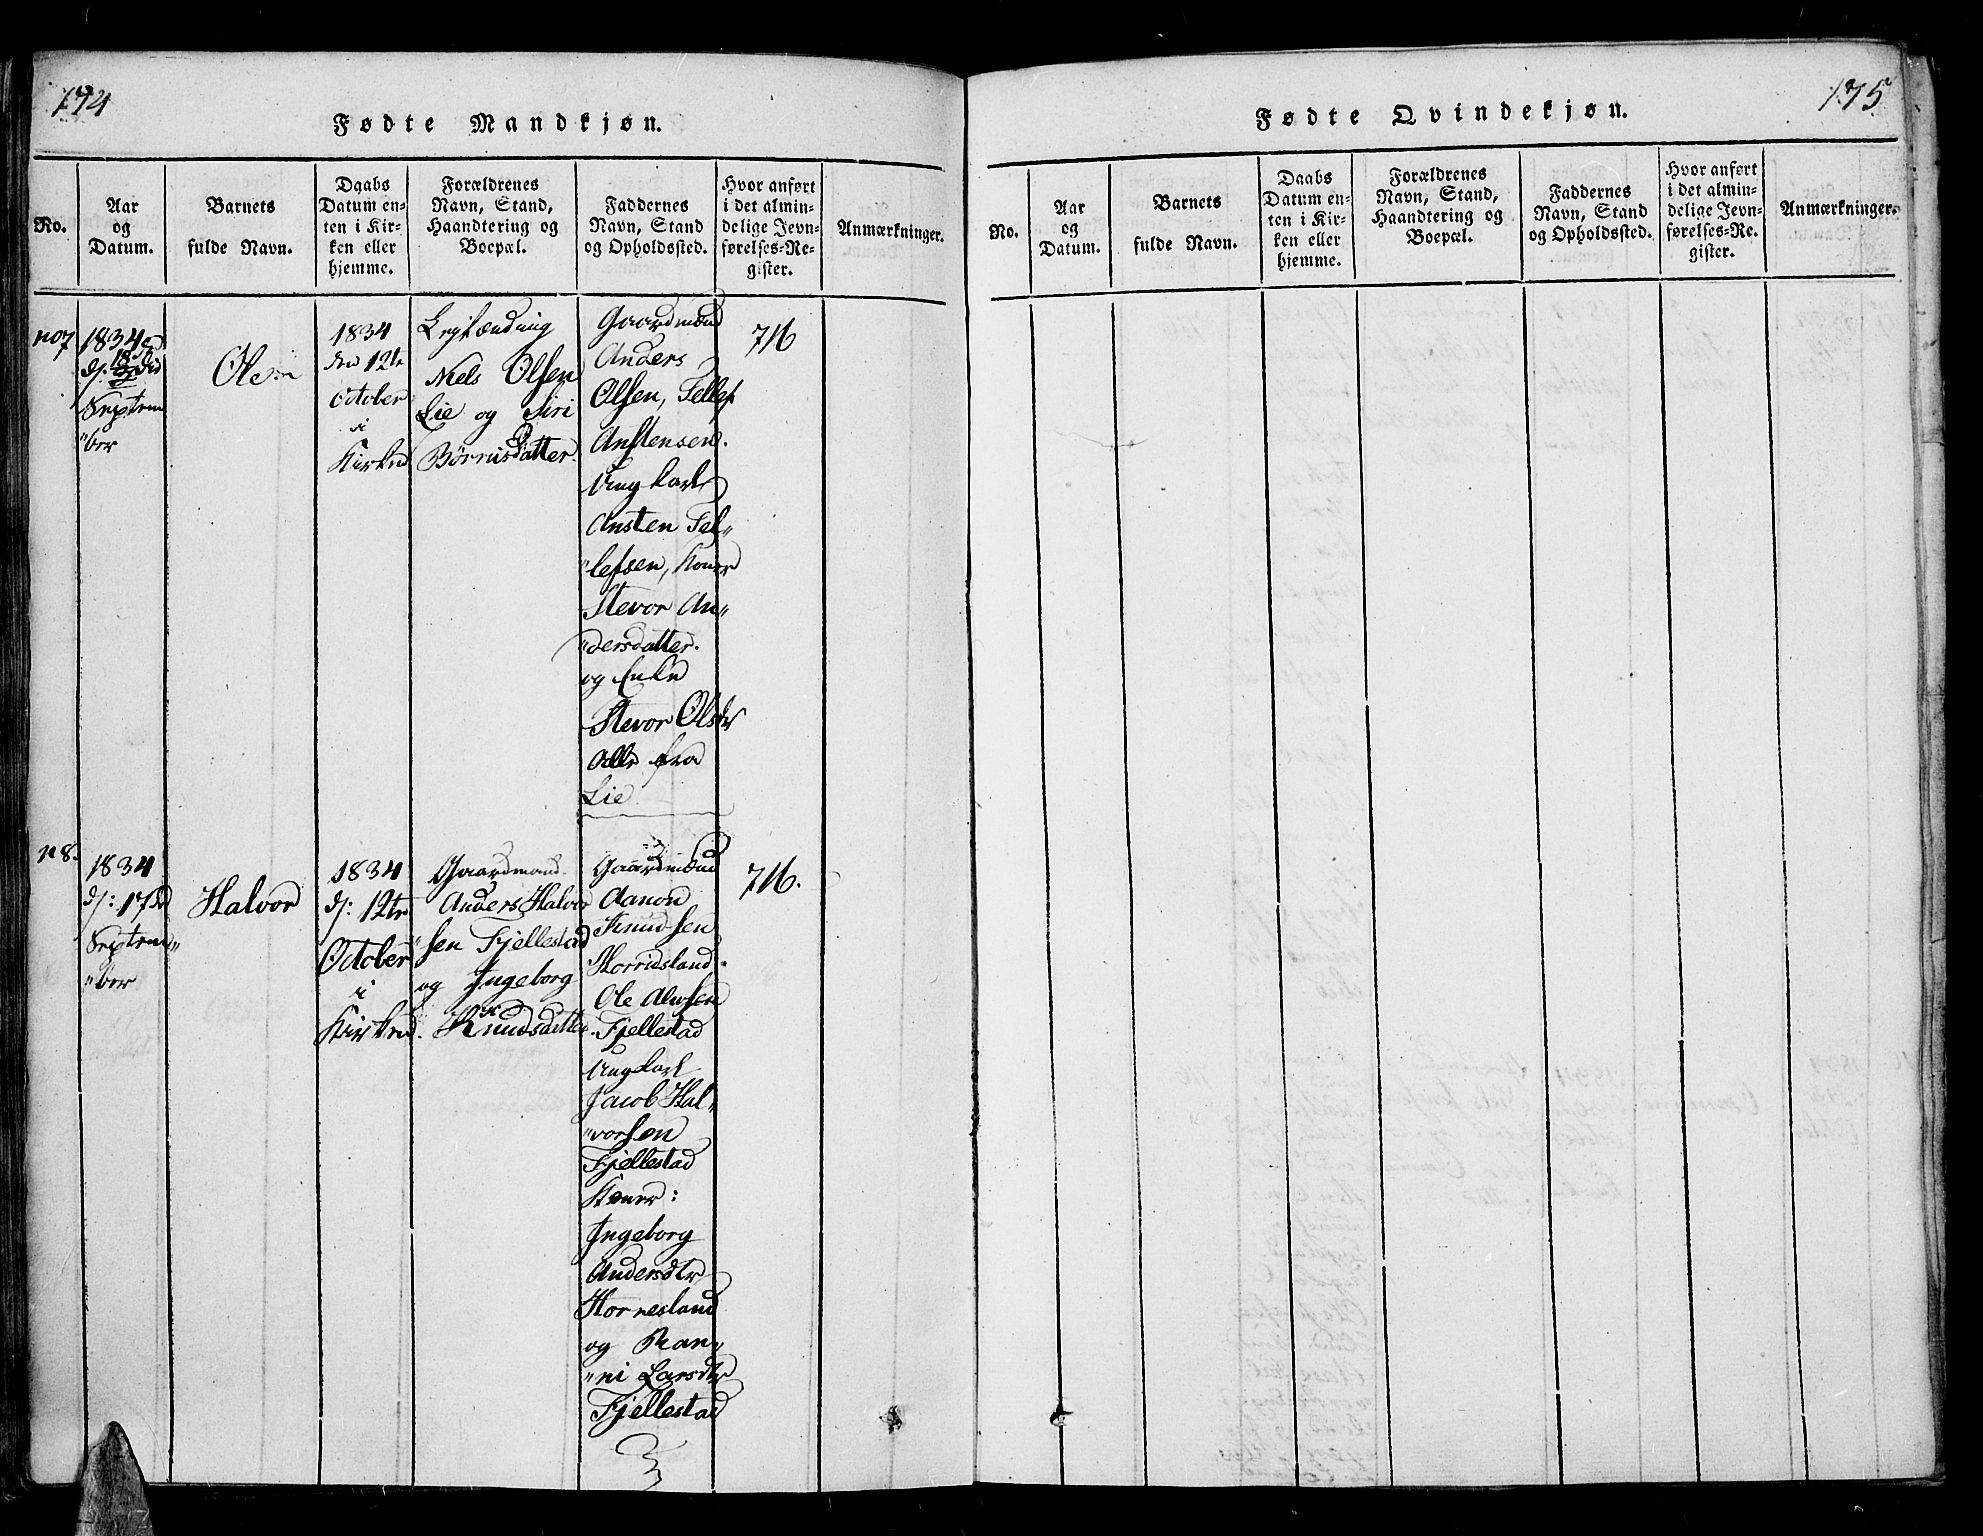 174
Fødte Mandkjøn.
No.
Aar
og
Datum.
Barnets
fulde Navn.
Daabs
Datum en-
ten i Kir-
ken eller
hjemme.
Forældrenes
Navn, Stand,
Haandtering og
Boepæl.
Faddernes
Navn, Stand
og Opholdssted.
Hvor anført
i det almin-
delige Jevn-
førelses-Re-
gister.
Anmærkninger.
no 7
1834
Septem
"ber
Ole
1834
den 12te
October
i
Kirken
Leylænding
Niels Olsen
Lie og Siri
Børnisdatter.
Gaardmænd
Anders
Olsen, Tellef
Anstensen.
Ungkarl
Ansten Tel"
"lefsen, Koner
Stevor An"
"dersdatter.
og Enke
Stevor Olsdtr
Alle fra
Lie
716
n 8.
1834
d: 17de
Septem"
"ber
Halvor
1834
d: 12te
October
i
Kirken.
Gaardmand
Anders Halvor
"sen Fjellestad
og Ingeborg
Knudsdatter.
Gaardmænd
Aanon
Knudsen
Horrisland.
Ole
Fjellestad
Ungkarl
Jacob Hal"
"vorsen
Fjellestad
Koner:
Ingeborg
Andersdtr
Hornesland
og Ran"
"ni Larsdtr
Fjellestad
716.
175
Fødte Qvindekjøn.
No.
Aar
og
Datum.
Barnets
fulde Navn.
Daabs
Datum en-
ten i Kir-
ken eller
hjemme.
Forældrenes
Navn, Stand,
Haandtering og
Boepæl.
Faddernes
Navn, Stand
og Opholdssted.
Hvor anført
i det almin-
delige Jevn-
førelses-Re-
gister.
Anmærkninger.